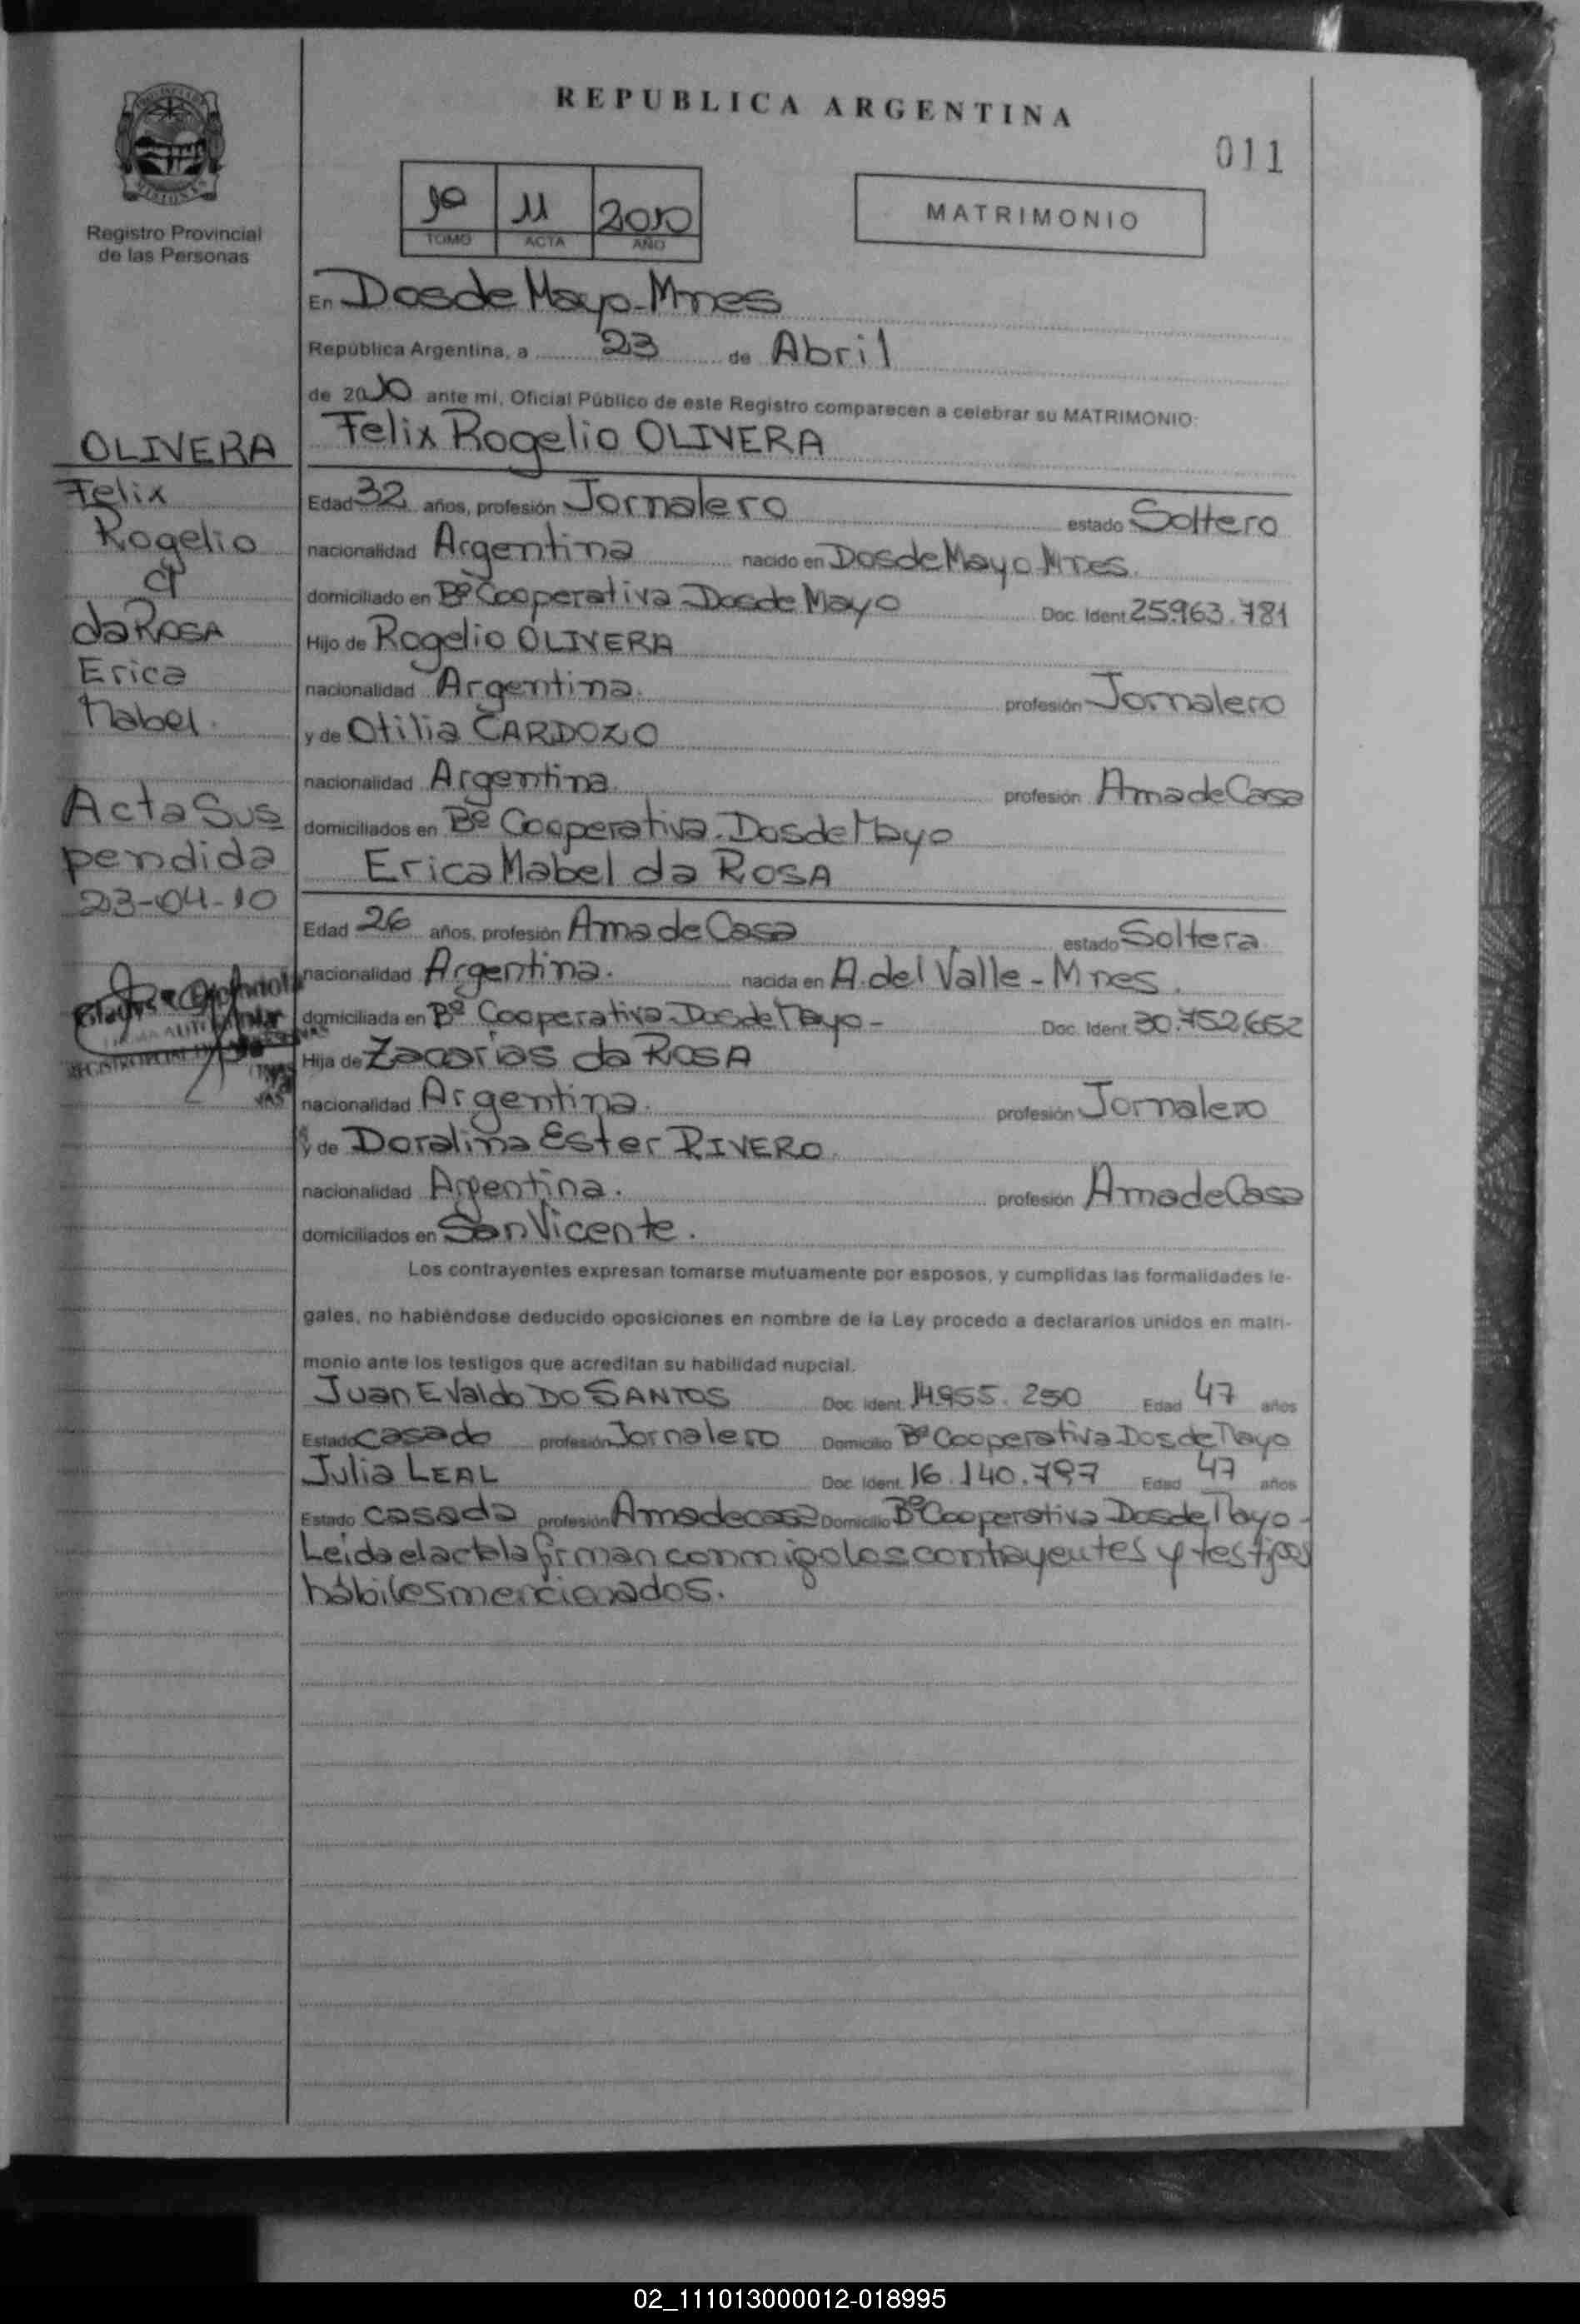 REPUBLICA ARGENTINA
011
Registro Provincial
de las Personas
11 2010
TOMO ACTA AÑO
MATRIMONIO
En Dos de Mayo - Mnes
República Argentina, a 23 de Abril
de 2010 ante mi, Oficial Público de este Registro comparecen a celebrar su MATRIMONIO:
Felix Rogelio OLIVERA
Edad 32 años, profesión Jornalero estado Soltero
nacionalidad Argentina nacido en Dos de Mayo Mnes.
domiciliado en Bº Cooperativa Dos de Mayo Doc. Ident 25.963.781
Hijo de Rogelio OLIVERA
nacionalidad Argentina. profesión Jornalero
y de Otilia CARDOZO
nacionalidad Argentina. profesión Ama de Casa
domiciliados en Bº Cooperativa. Dos de Mayo
Erica Mabel da ROSA
Edad 26 años, profesión Ama de Casa estado Soltera
nacionalidad Argentina. nacida en A. del Valle - Mnes.
domiciliada en Bº Cooperativa. Dos de Mayo - Doc. Ident. 30.752.662
Hija de Zacarias da ROSA
nacionalidad Argentina. profesión Jornalero
y de Doralina Ester RIVERO.
nacionalidad Argentina. profesión Ama de Casa
domiciliados en San Vicente.
Los contrayentes expresan tomarse mutuamente por esposos, y cumplidas las formalidades le-
gales, no habiéndose deducido oposiciones en nombre de la Ley procedo a declararlos unidos en matri-
monio ante los testigos que acreditan su habilidad nupcial.
Juan Evaldo DO SANTOS Doc. Ident. 14.955.250 Edad 47 años
Estado casado profesión Jornalero Domicilio Bº Cooperativa Dos de Mayo
Julia LEAL Doc. Ident. 16.140.797 Edad 47 años
Estado casada profesión Ama de casa Domicilio Bº Cooperativa Dos de Mayo -
Leida el acta la firman conmigo los contrayentes y testigos
hábiles mencionados.
OLIVERA
Felix
Rogelio
c/
da ROSA
Erica
Mabel.
Acta Sus
pendida
23-04-10
02_111013000012-018995